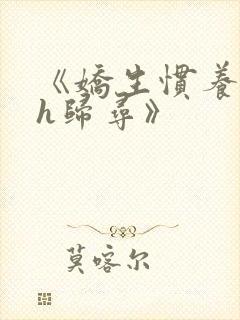 《嬌生慣養
h歸尋》
莫喀尔